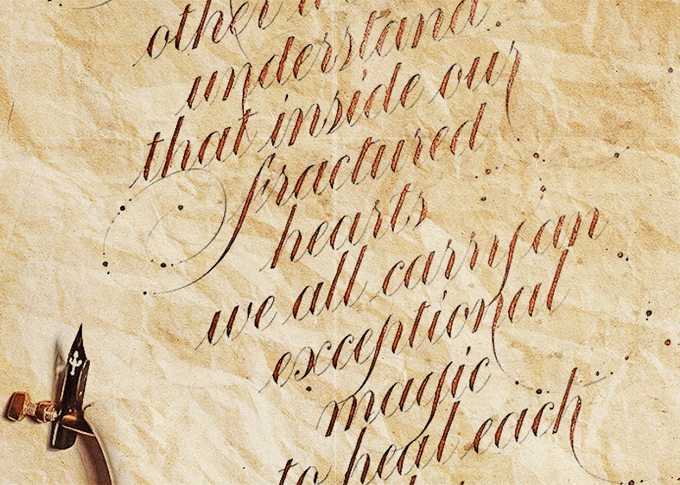 other
understand.
that inside our
fractured
hearts
we all carry an
exceptional
magic
to heal each